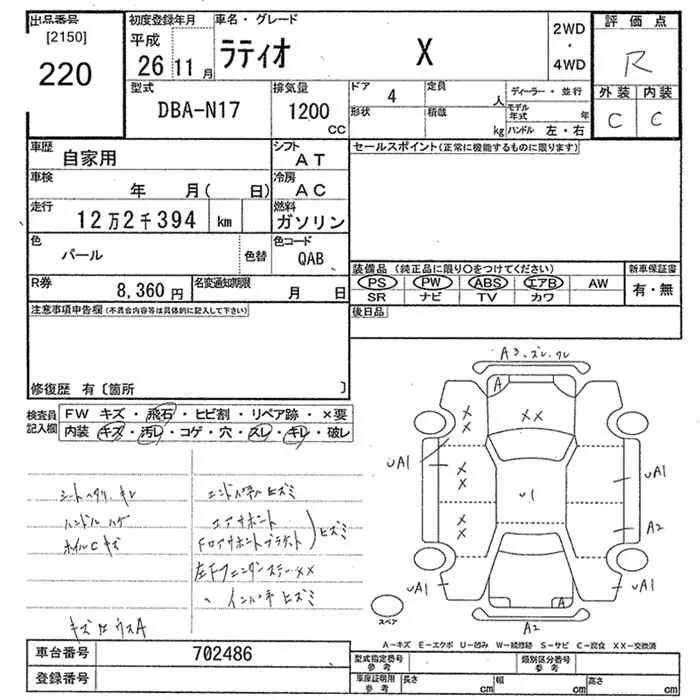 出品番号
[2150]
220
初度登録年月
平成
26 11 月
車名・グレード
ラティオ X
2WD
・
4WD
評価点
R
外装 内装
C C
型式
DBA-N17
排気量
1200
CC
ドア
4
定員
人
形状
積載
kg
ディーラー・並行
モデル年式 年
ハンドル 左・右
車歴
自家用
シフト
AT
車検
年 月( 日)
冷房
AC
走行
12万2千394 km
燃料
ガソリン
色
パール
色替
色コード
QAB
R券
8,360 円
名変通知期限
月 日
セールスポイント(正常に機能するものに限ります)
装備品(純正品に限り○をつけてください)
PS PW ABS エアB AW
SR ナビ TV カワ
新車保証書
有・無
後日品
注意事項申告欄(不具合内容等は具体的に記入して下さい)
修復歴 有〔箇所 〕
検査員記入欄
FW キズ・飛石・ヒビ割・リペア跡・×要
内装・キズ・汚レ・コゲ・穴・スレ・キレ・破レ
シートヘタリ、キレ
ハンドル ハゲ
ホイルC キズ
エアサポート
ヒズミ
左Fフェンダーステー××
インパネ ヒズミ
A3
A
××
×
×
×
×
×
×
UA1
U1
UA1
A2
UA1
UA1
A
A2
スペア
A-キズ E-エクボ U-凹み W-補修跡 S-サビ C-腐食 XX-交換済
車台番号
702486
登録番号
型式指定番号
参考
類別区分番号
参考
車庫証明用
参考
長さ cm
幅 cm
高さ cm